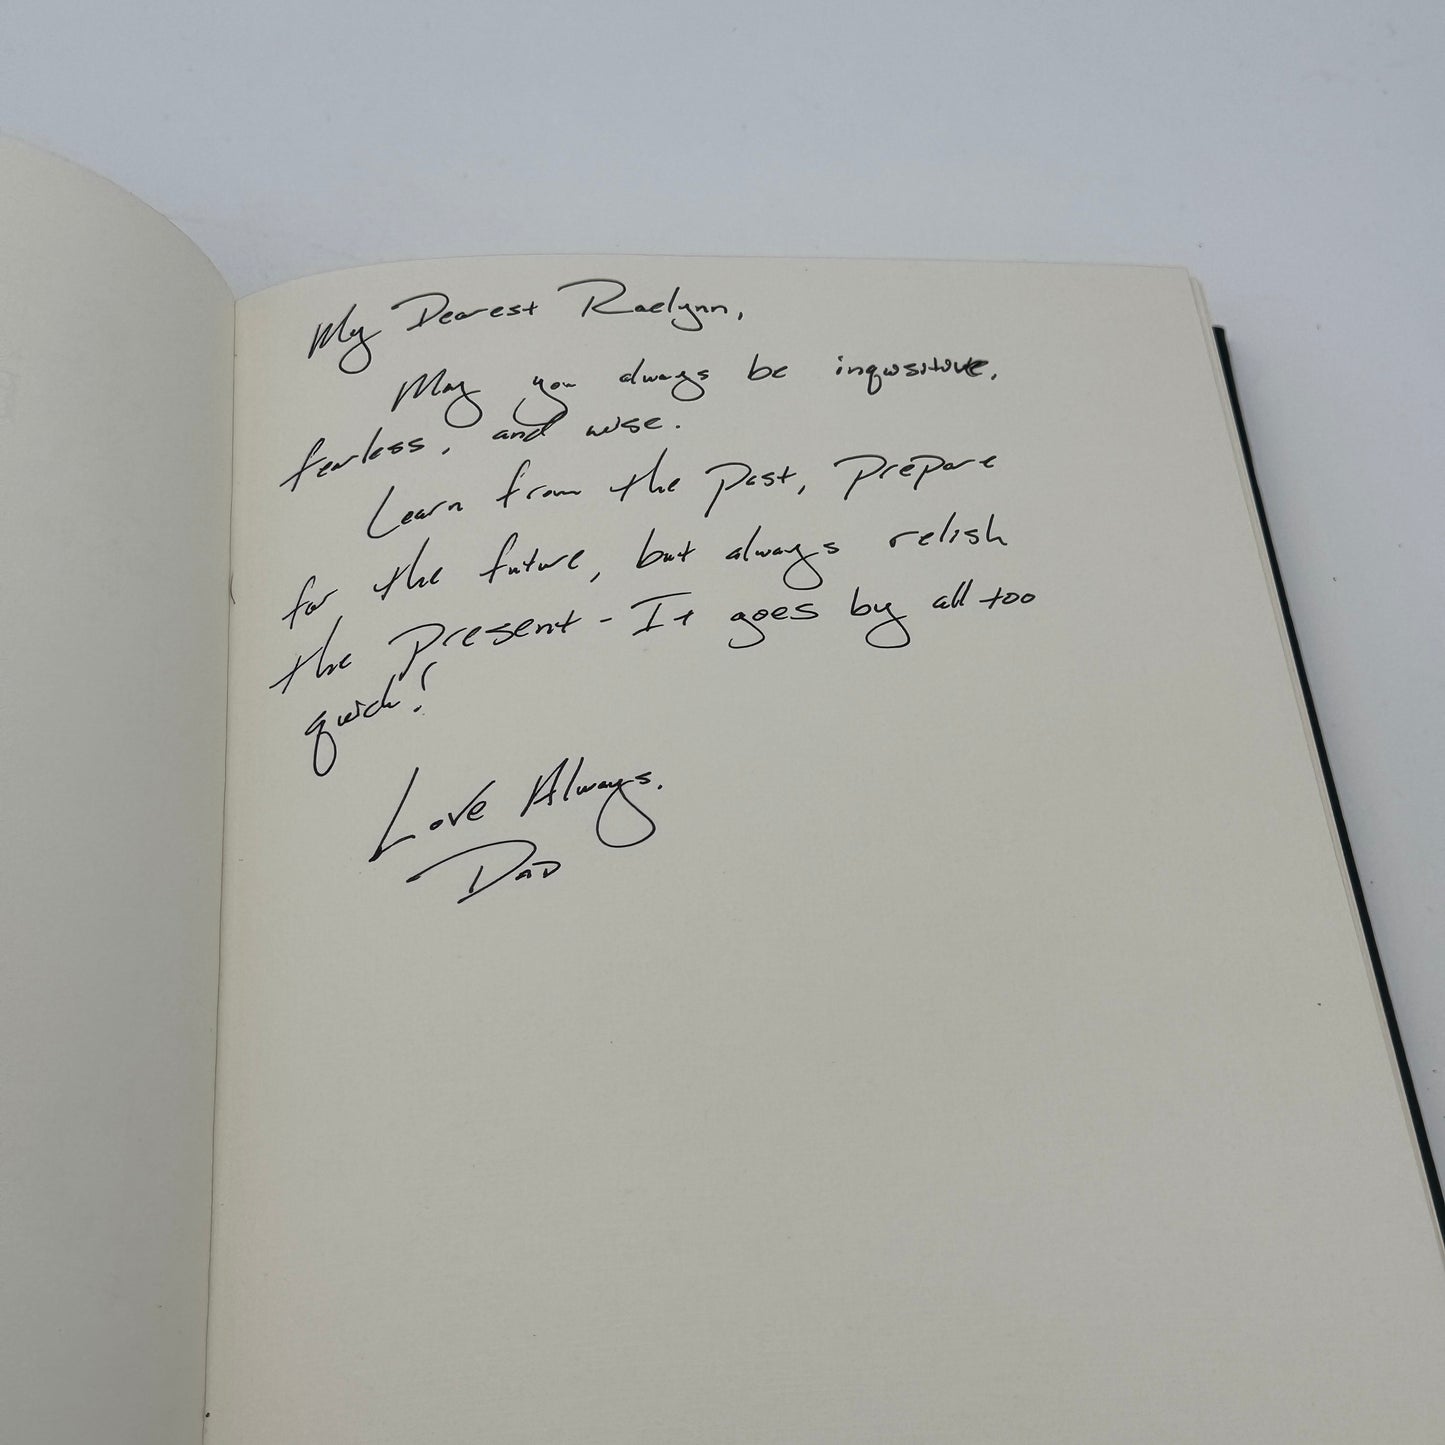 My Dearest Raelynn,
May you always be inqusitive,
fearless, and wise.
Learn from the Past, Prepare
for the future, but always relish
the Present - It goes by all too
quick!
Love Always,
Dad